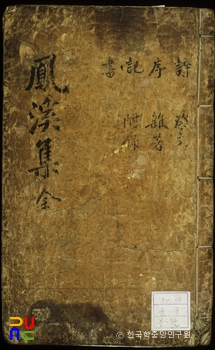 詩 祭文
序 雜著
記 附錄
書
鳳溪集 全
© 한국학중앙연구원